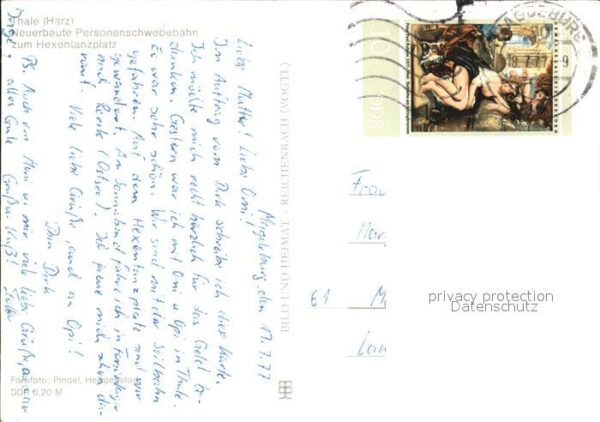 Thale (Harz)
Neuerbaute Personenschwebebahn
zum Hexentanzplatz
Magdeburg, den 17.7.77
Liebe Mutter! Liebe Omi!
Im Auftrag von Dirk schreibe ich diese Karte.
Ich möchte mich recht herzlich für das Geld be-
danken. Gestern war ich mit Omi u Opi in Thale.
Es war sehr schön. Wir sind mit der Seilbahn
gefahren. Auf dem Hexentanzplatz sind wir
gewandert. Am Sonnabend fahre ich in
nach (Ostsee). Ich freue mich schon da-
rauf! Viele liebe Grüße, und an Opi!
Dein Dirk
PS. Auch von Omi u mir viele liebe Grüße,
alles Gute
Gruß u. Kuß!
Farbfoto: Pingel,
DDR 0,20 M
BILD UND HEIMAT · REICHENBACH (VOGTL)
MAGDEBURG
18.7.77-9
10
DDR
Frau
61 M
privacy protection
Datenschutz